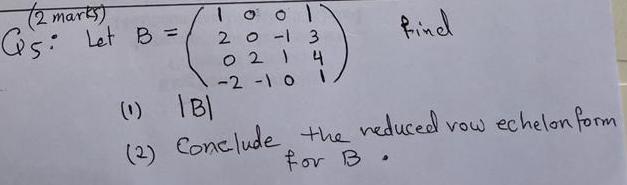 (2 marks)
Q5: Let B = ( 1 0 0 1 ) find
2 0 -1 3
0 2 1 4
-2 -1 0 1
(1) |B|
(2) Conclude the reduced row echelon form
for B.